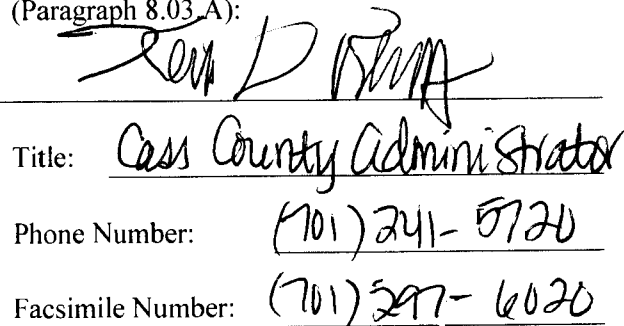 (Paragraph 8.03.A):
Title: Cass County Administrator
Phone Number: (701) 241-5720
Facsimile Number: (701) 297-6020